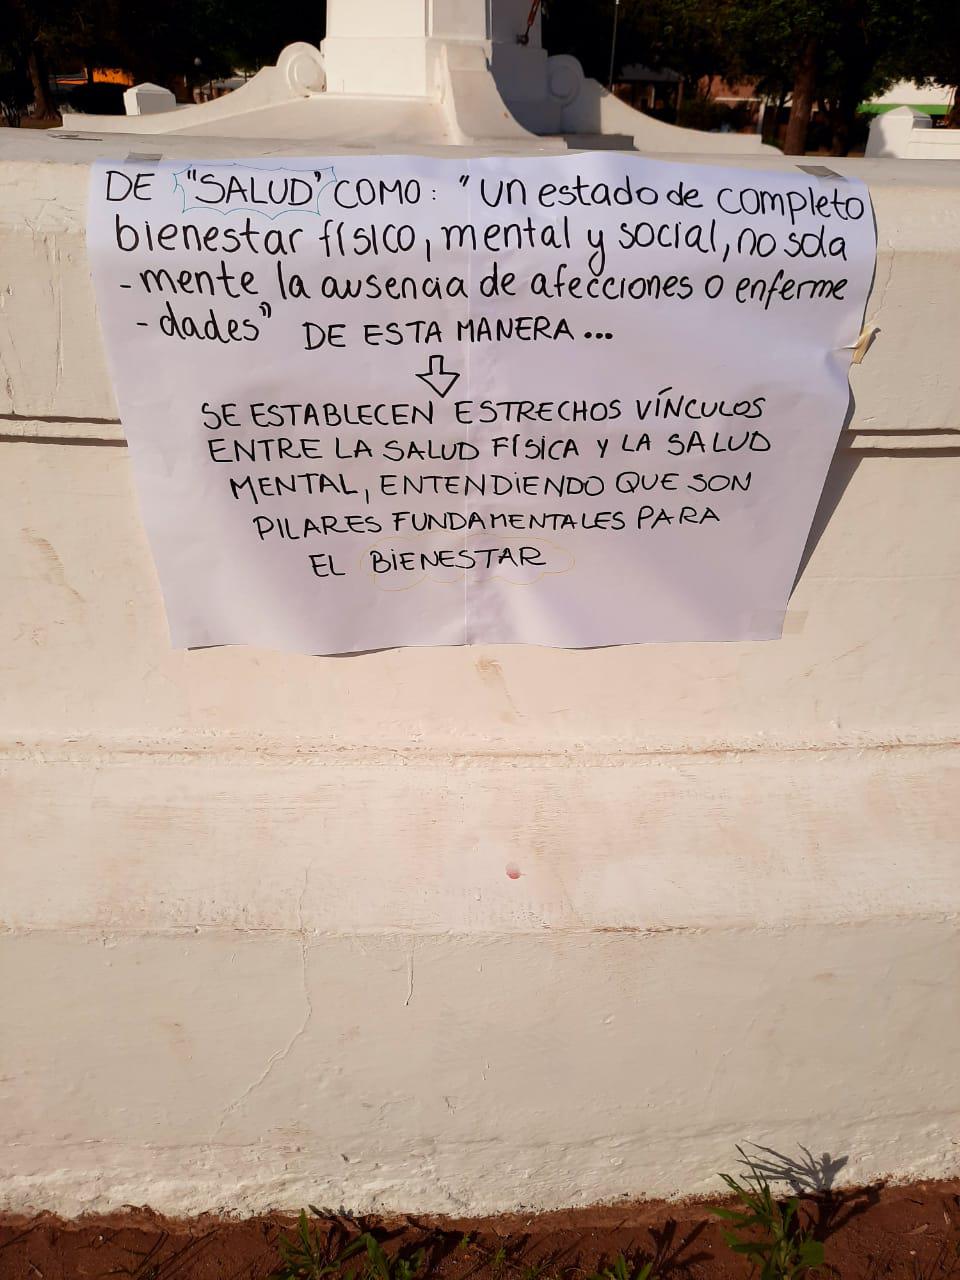 DE "SALUD" COMO: "un estado de completo
bienestar físico, mental y social, no sola
-mente la ausencia de afecciones o enferme
-dades" DE ESTA MANERA...
SE ESTABLECEN ESTRECHOS VÍNCULOS
ENTRE LA SALUD FÍSICA Y LA SALUD
MENTAL, ENTENDIENDO QUE SON
PILARES FUNDAMENTALES PARA
EL BIENESTAR